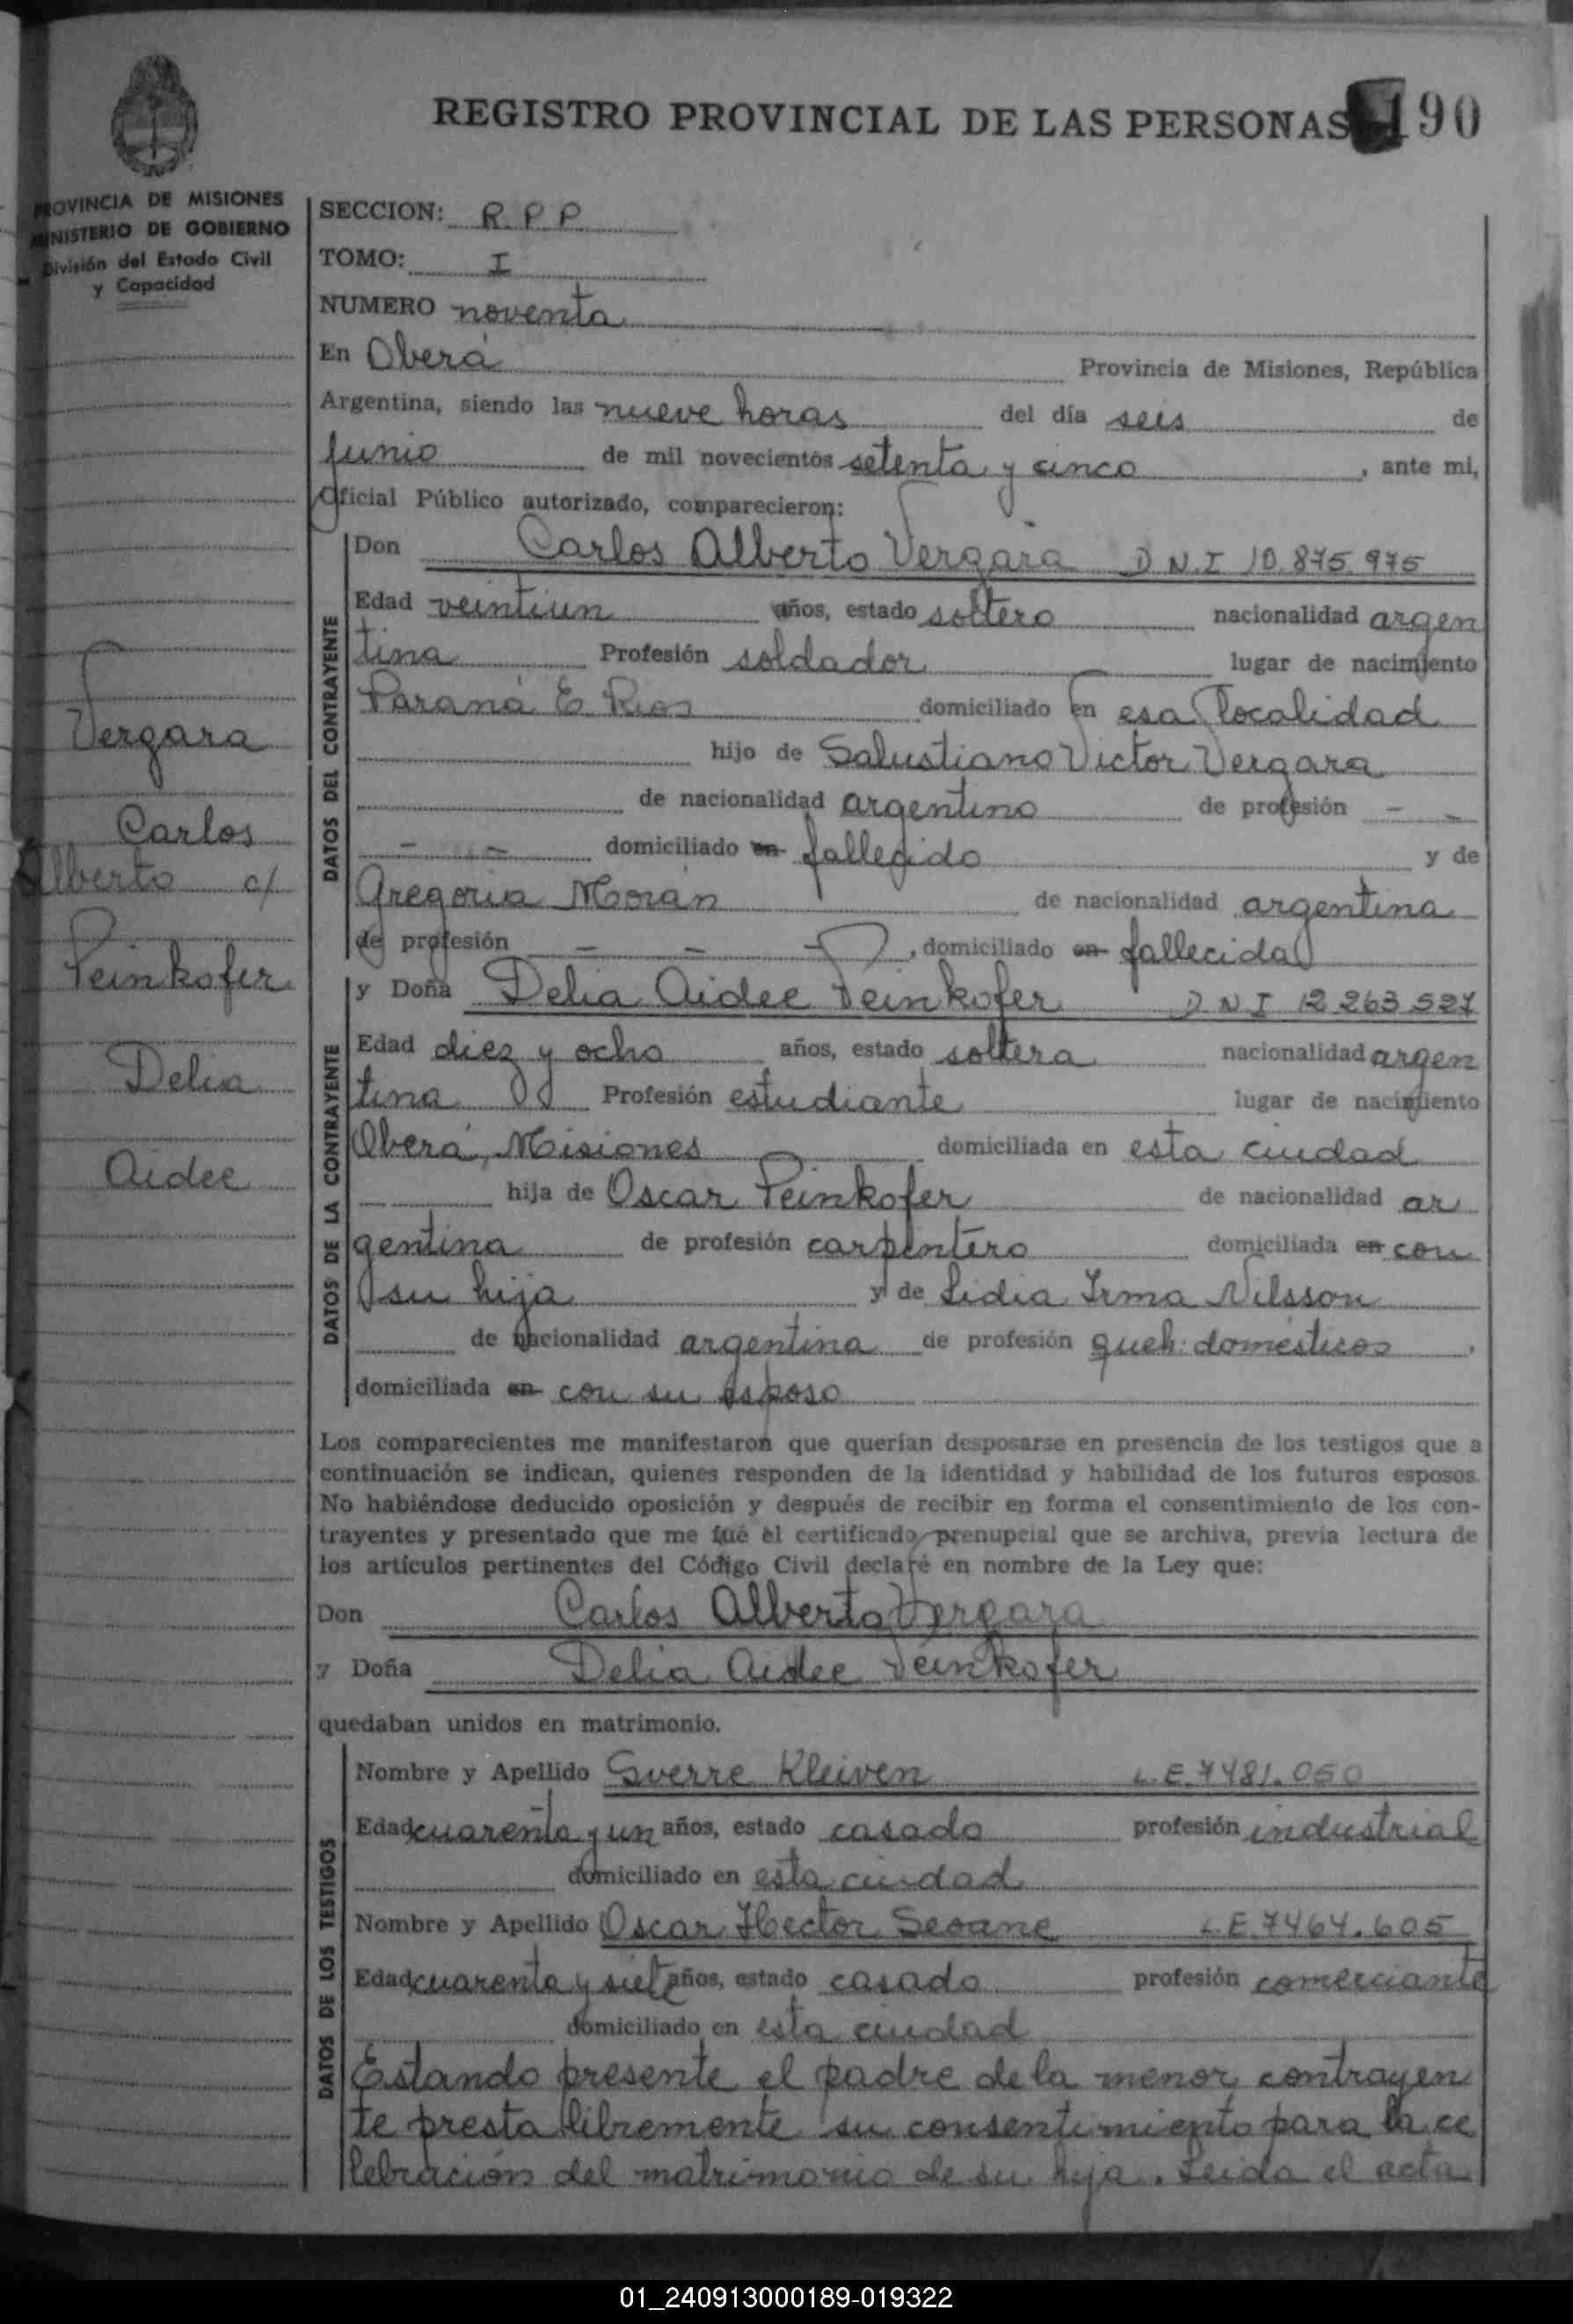 REGISTRO PROVINCIAL DE LAS PERSONAS 190
PROVINCIA DE MISIONES
MINISTERIO DE GOBIERNO
División del Estado Civil
y Capacidad
Vergara
Carlos
Alberto c/
Peinkofer
Delia
Aidee
SECCION: R P P
TOMO: I
NUMERO noventa
En Oberá Provincia de Misiones, República
Argentina, siendo las nueve horas del día seis de
Junio de mil novecientos setenta y cinco, ante mi,
Oficial Público autorizado, comparecieron:
DATOS DEL CONTRAYENTE
Don Carlos Alberto Vergara D.N.I 10.875.975
Edad veintiun años, estado soltero nacionalidad argen
tina Profesión soldador lugar de nacimiento
Paraná E. Rios domiciliado en esa localidad
hijo de Salustiano Victor Vergara
de nacionalidad argentino de profesión - -
- - domiciliado en fallecido y de
Gregoria Morán de nacionalidad argentina
de profesión - - , domiciliado en fallecida
DATOS DE LA CONTRAYENTE
y Doña Delia Aidee Peinkofer D N I 12.263.527
Edad diez y ocho años, estado soltera nacionalidad argen
tina Profesión estudiante lugar de nacimiento
Oberá, Misiones domiciliada en esta ciudad
hija de Oscar Peinkofer de nacionalidad ar
gentina de profesión carpintero domiciliada en con
su hija y de Lidia Irma Nilsson
de nacionalidad argentina de profesión queh. domésticos,
domiciliada en con su esposo
Los comparecientes me manifestaron que querían desposarse en presencia de los testigos que a
continuación se indican, quienes responden de la identidad y habilidad de los futuros esposos.
No habiéndose deducido oposición y después de recibir en forma el consentimiento de los con-
trayentes y presentado que me fué el certificado prenupcial que se archiva, previa lectura de
los artículos pertinentes del Código Civil declaré en nombre de la Ley que:
Don Carlos Alberto Vergara
y Doña Delia Aidee Peinkofer
quedaban unidos en matrimonio.
DATOS DE LOS TESTIGOS
Nombre y Apellido Sverre Kleiven L.E. 7481.050
Edad cuarenta y un años, estado casado profesión industrial
domiciliado en esta ciudad
Nombre y Apellido Oscar Hector Seoane L.E. 7464.605
Edad cuarenta y siete años, estado casado profesión comerciante
domiciliado en esta ciudad
Estando presente el padre de la menor contrayen
te presta libremente su consentimiento para la ce
lebración del matrimonio de su hija. Leida el acta
01_240913000189-019322